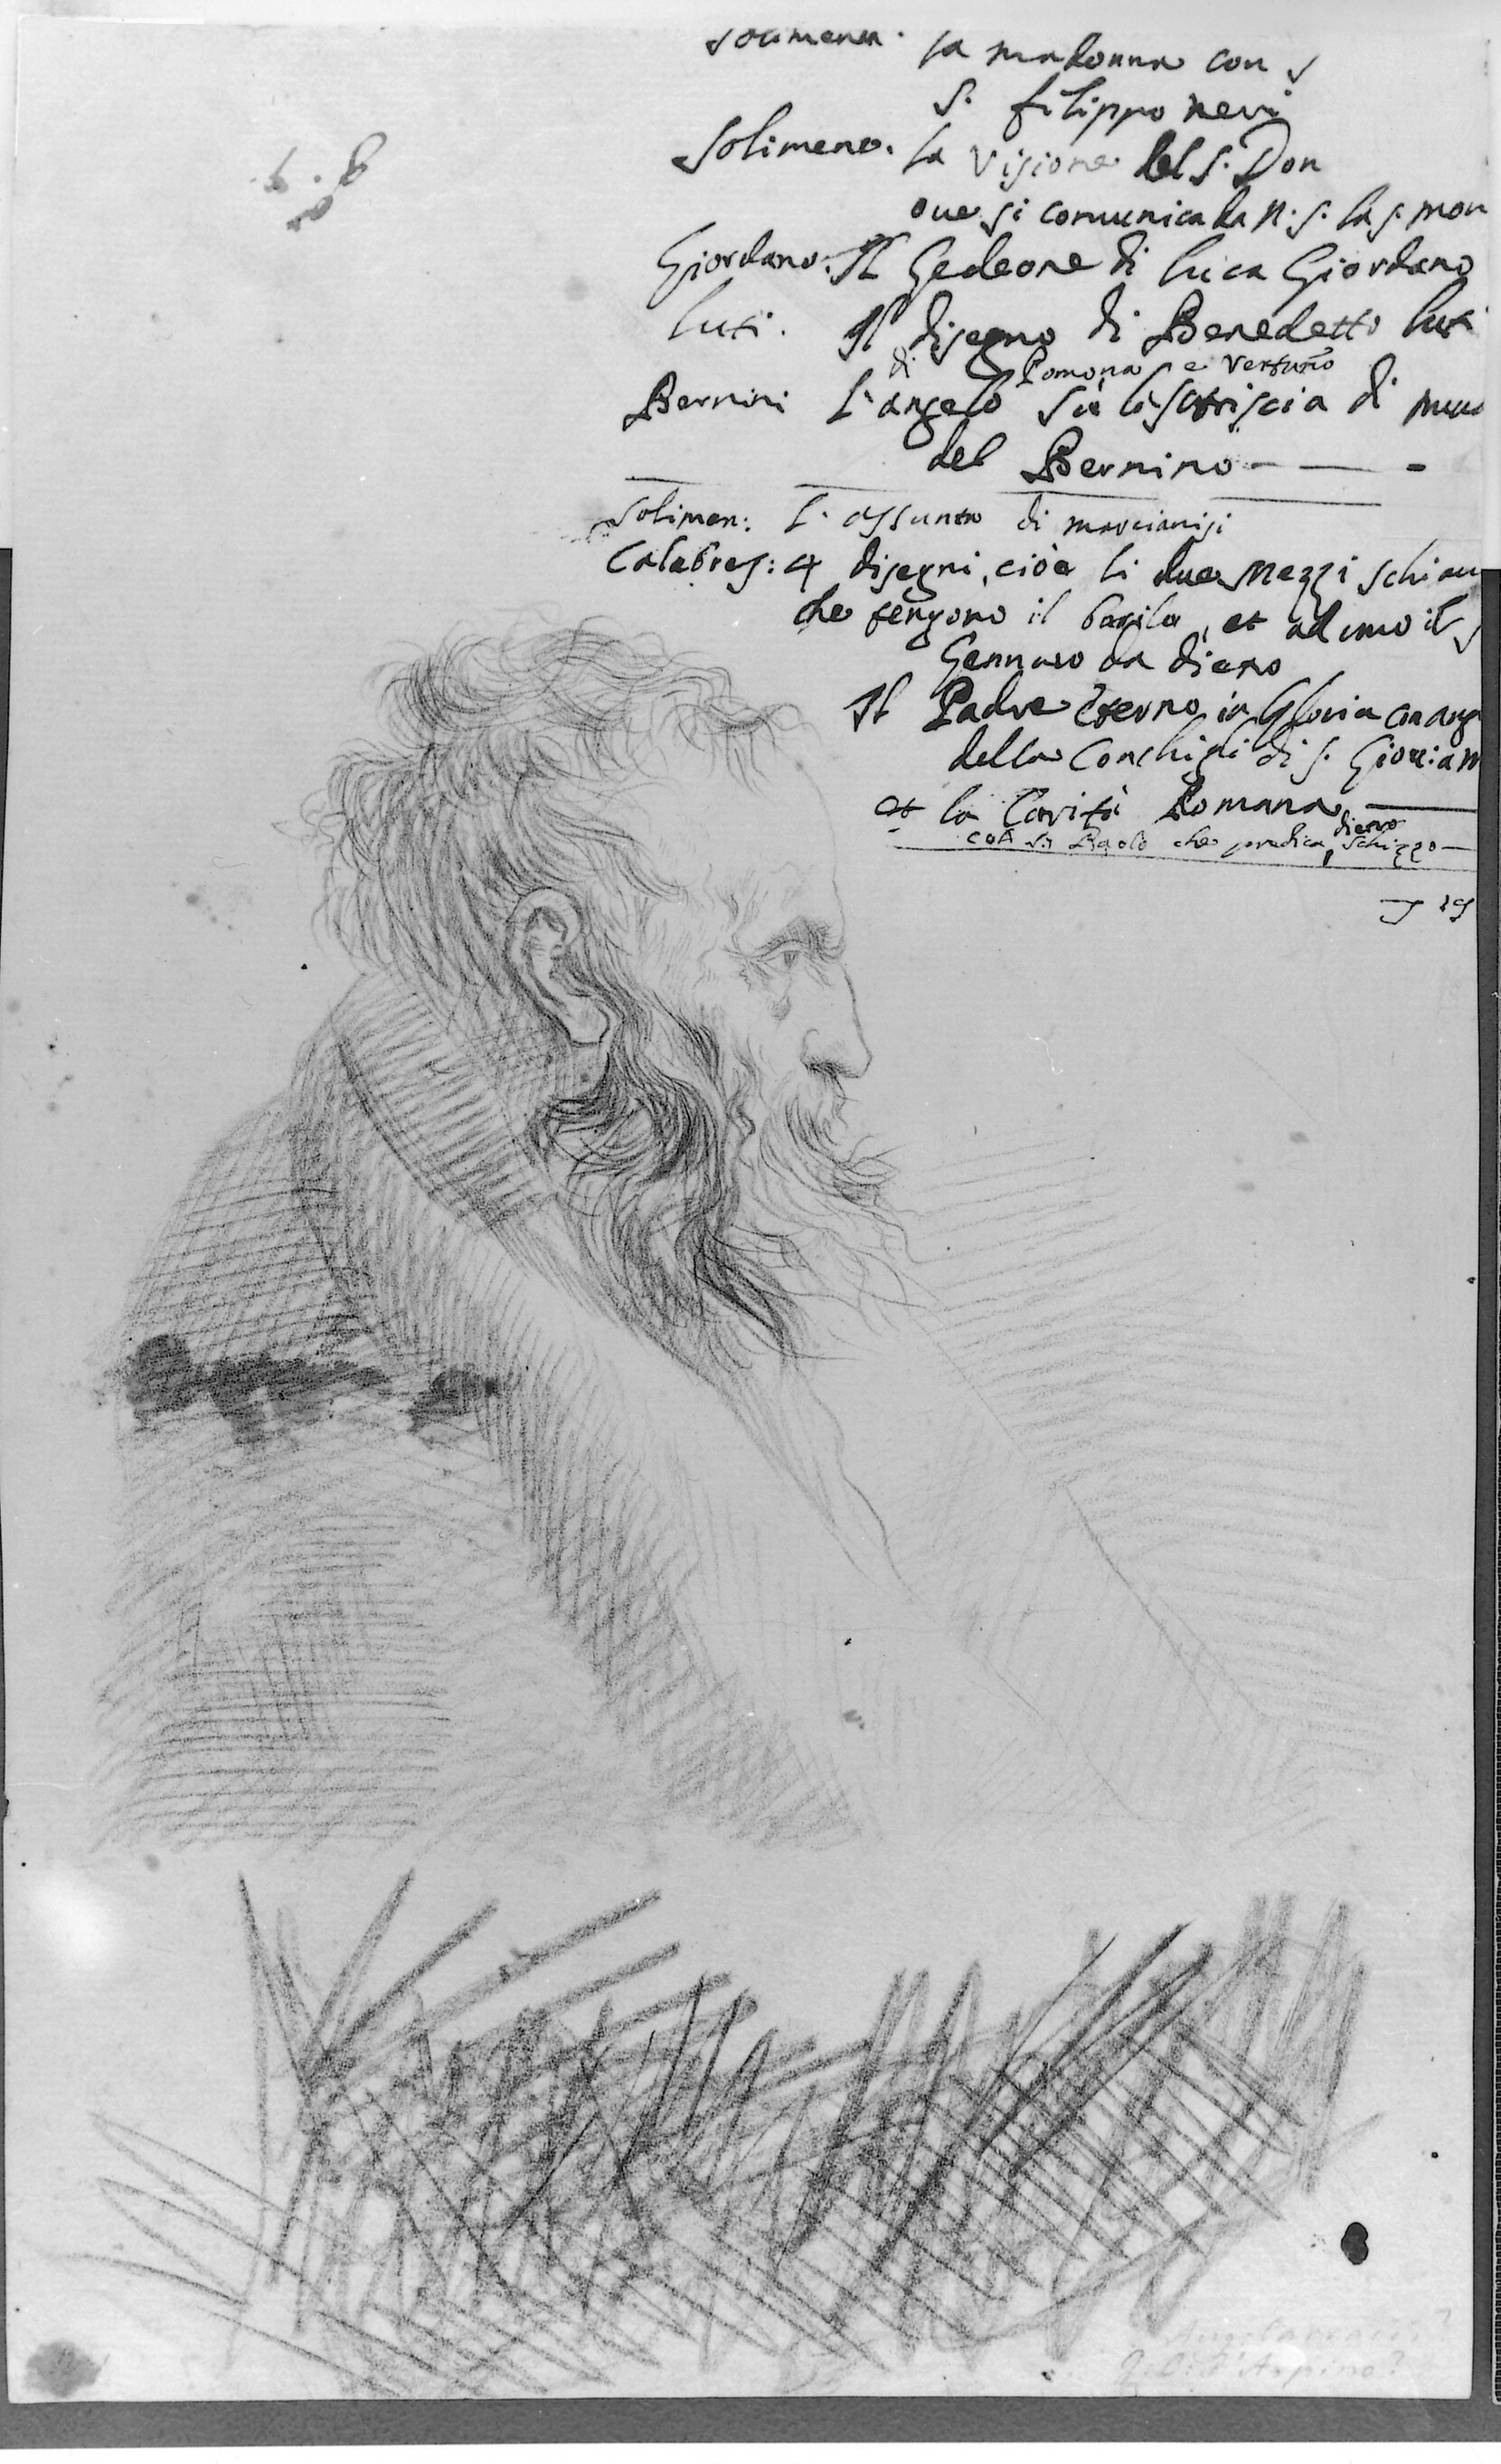 Solimena. La madonna con S
S. filippo neri
Solimena. La Visione del S. Don
oue si comunica da N. S. la s. mon
Giordano. Il Gedeone di luca Giordano
luti. Il disegno di Benedetto luti
di Pomona e Vertuno
Bernini L'angelo sù la striscia di
del Bernino
Solimen: L'assunta di marcianisi
Calabres: 4 disegni, cioè li due mezzi schiau
che tengono il basile, et ad uno il S
Gennaro da dietro
Il Padre Eterno in Gloria con ang
della Conchigli di S. Giouan
et la Carità Romana
con S. Paolo che predica, dietro schizzo
19
d'Arpino?